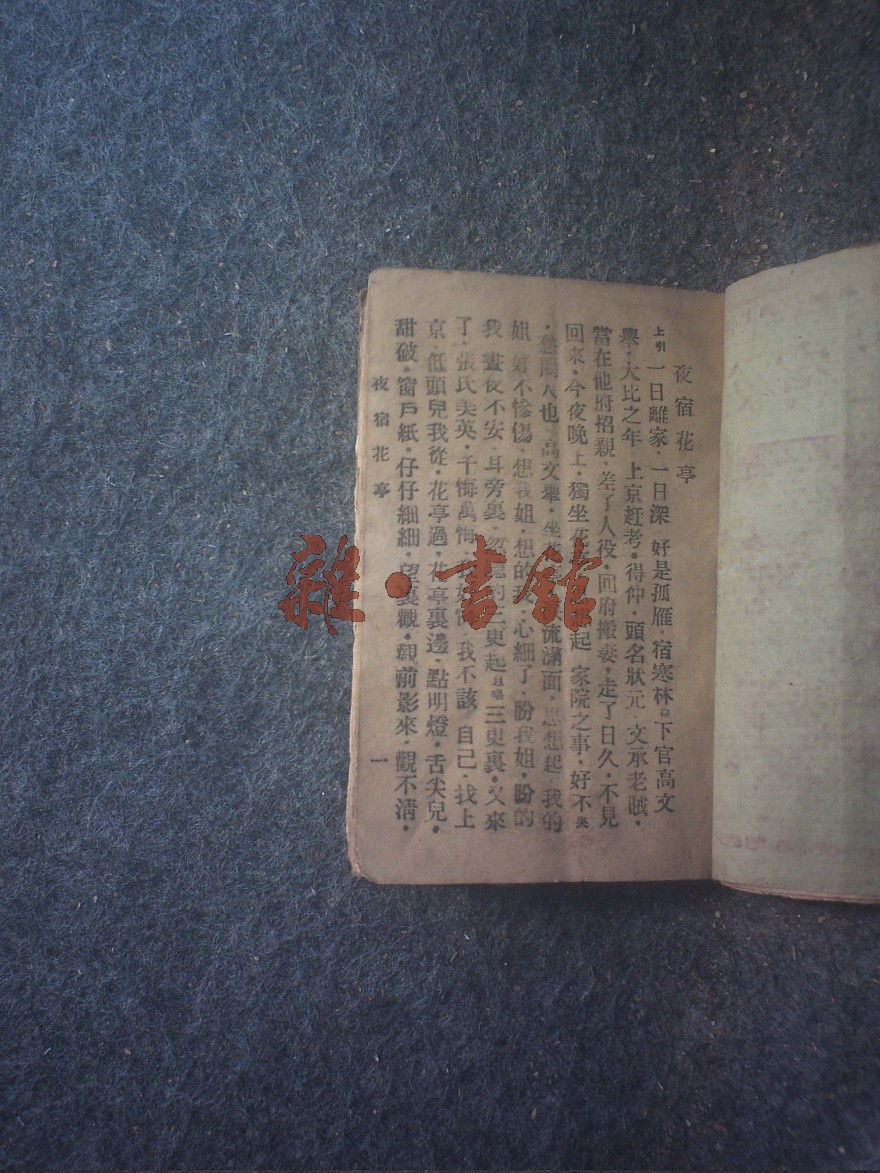 夜宿花亭
上引 一日離家·一日深 好是孤雁·宿寒林。下官高文
舉·大比之年 上京赶考·得仲·頭名狀元 文承老賊·
當在他府招親·差了人役·回府搬妻·走了日久·不見
回來·今夜晚上·獨坐花 起 家院之事·好不
·愁悶人也 高文舉·坐 流滿面·思想起·我的
姐姐·好不慘傷·想我姐·想的我·心細了·盼我姐·盼的
我·晝夜不安·耳旁裏· 的二更起 旦唱 三更裏·又來
了·張氏美英·千悔萬悔 我不該 自己·找上
京·低頭兒我從·花亭過·花亭裏邊·點明燈·舌尖兒·
甜破·窗戶紙·仔仔細細·望裏觀·觀前影來·觀不清·
夜宿花亭 一
雜·書館